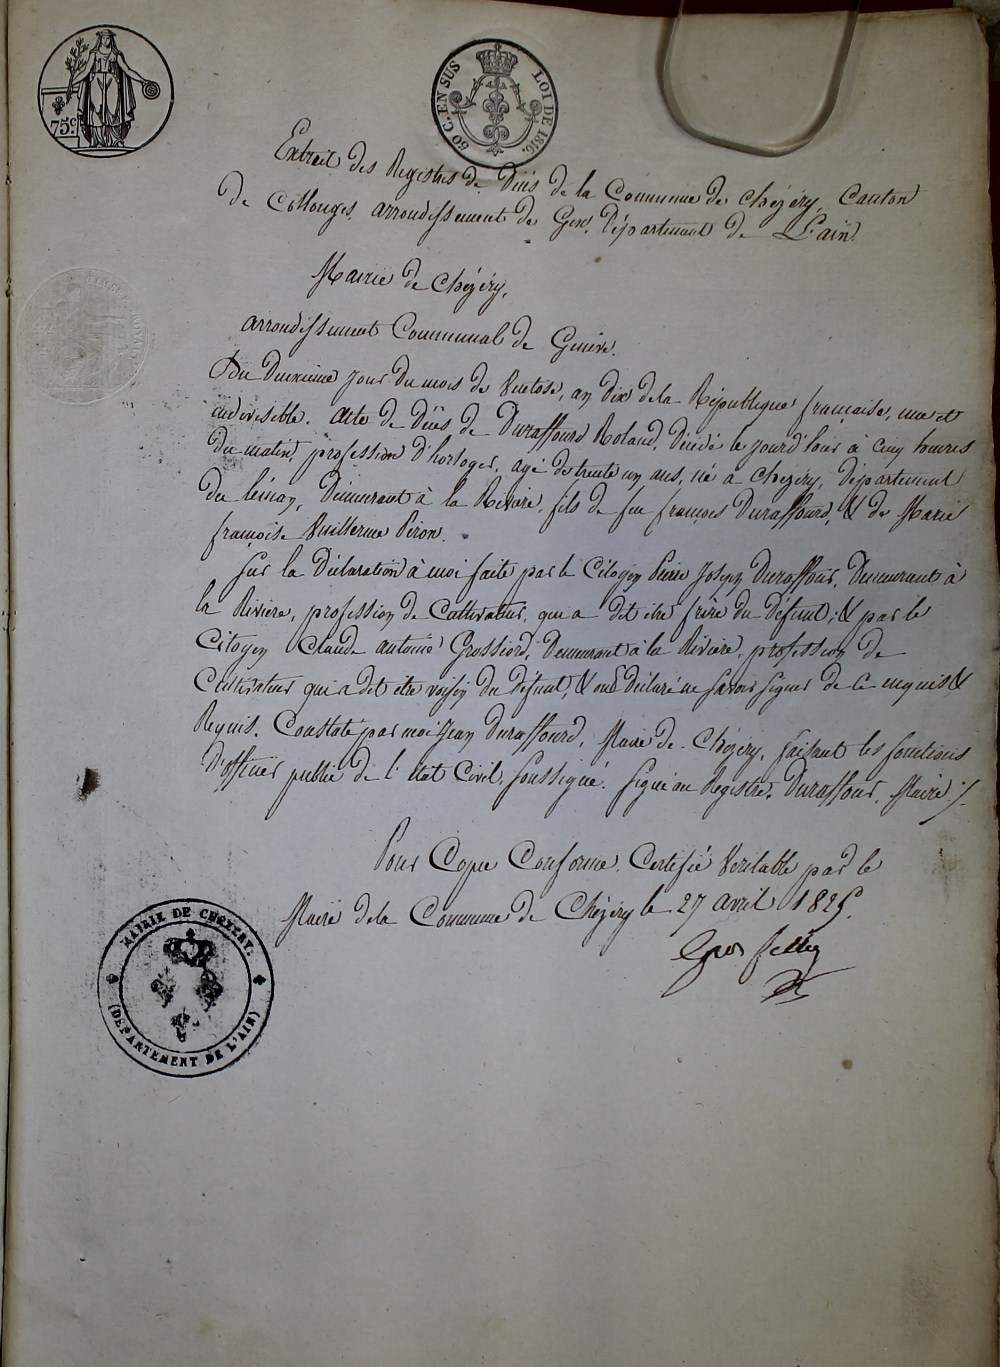 75c.
50 C. EN SUS LOI DE 1816.
Extrait des Registres de Décès de la Commune de Chézéry, Canton
de Collonges, arrondissement de Gex, Département de L'ain.
Mairie de Chézéry,
arrondissement Communal de Genève.
Du Deuxième jour du mois de Ventose, an Dix de la République française, une et
indivisible. Acte de Décès de Duraffourd Roland, Décédé ce jourd'hui à cinq heures
du matin, profession d'horloger, agé de trente un ans, né à Chézéry, Département
du Léman, Demeurant à la Rivière, fils de feu françois Duraffourd, & de Marie
françoise Vuillerme
Sur la Déclaration à moi faite par le Citoyen Pierre Joseph Duraffour, Demeurant à
la Rivière, profession de Cultivateur, qui a dit etre frère du Défunt, & par le
Citoyen Claude antoine Grossiord, Demeurant à la Rivière, profession de
Cultivateur qui a dit etre voisin du Défunt, & ont déclaré ne savoir signer de ce enquis, &
Requis. Constaté par moi Jean Duraffourd, Maire de Chézéry, faisant les fonctions
d'officier public de l'état Civil, soussigné. Signé au Registre. Duraffour, Maire ./.
Pour Copie Conforme, Certifié Véritable par le
Maire de la Commune de Chézéry le 27 avril 1825.
Gros
MAIRIE DE CHEZERY.
(DEPARTEMENT DE L'AIN)